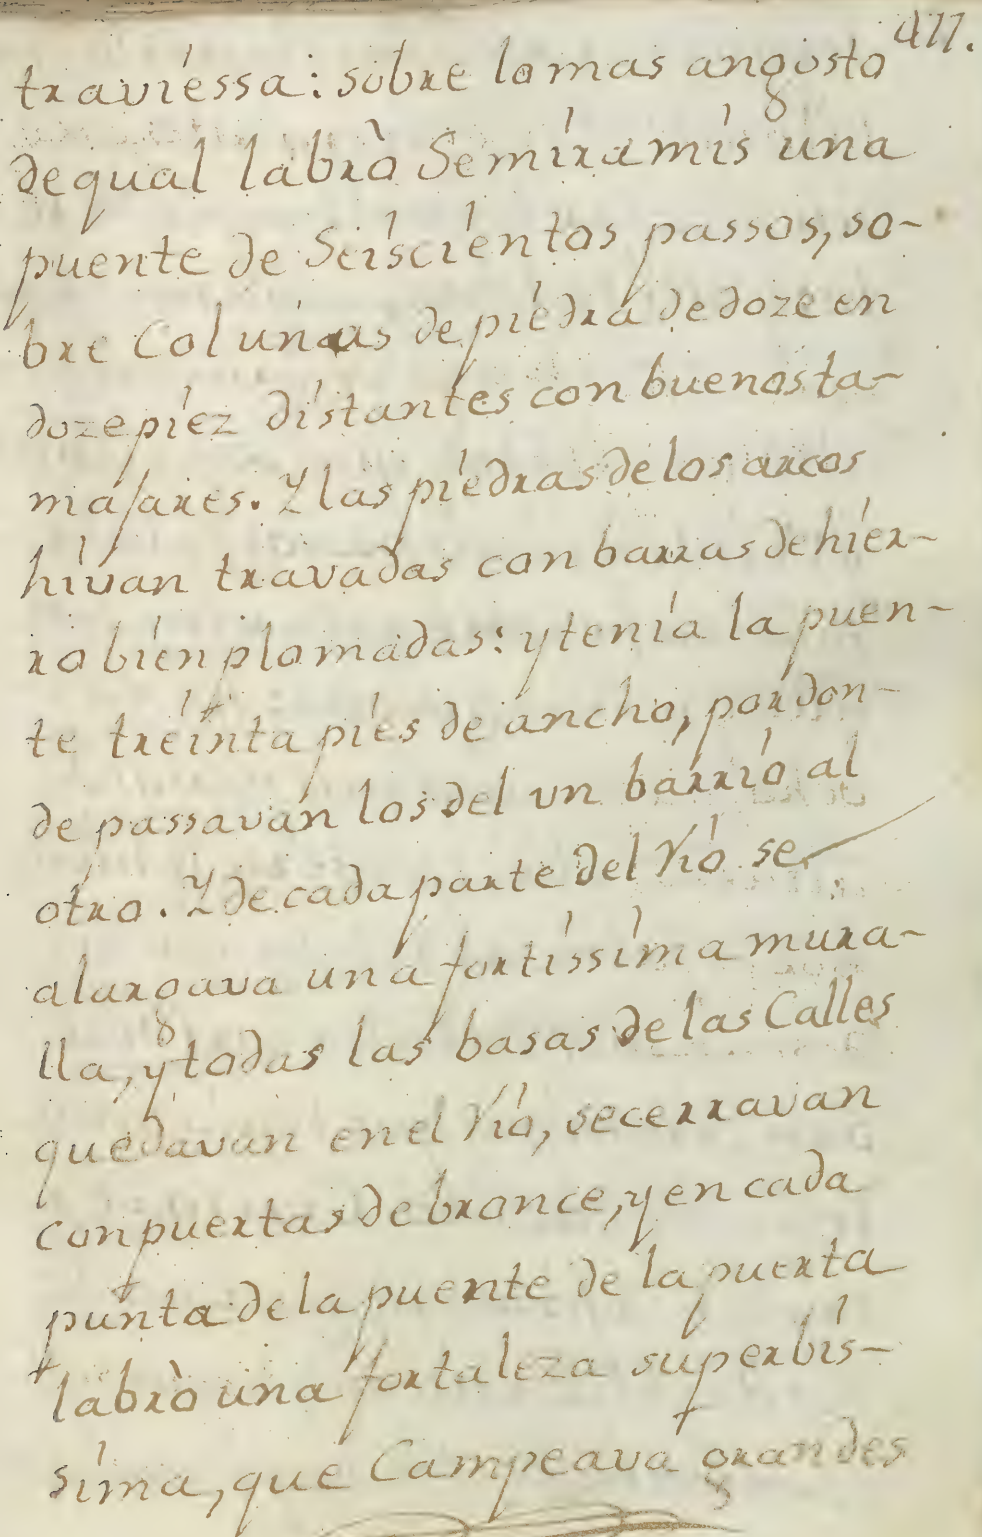 411.
traviessa: sobre lo mas angosto
de qual labrò Semiramis una
puente de Seiscientos passos, so-
bre Colunas de piedra de doze en
doze piez distantes con buenos ta-
majares. Y las piedras de los arcos
hivan travadas con barras de hier-
ro bien plomadas: y tenia la puen-
te treinta pies de ancho, por don-
de passavan los del vn barrio al
otro. Y de cada parte del Rio se
alargava una fortissima mura-
lla, y todas las basas de las Calles
quedavan en el Rio, se cerravan
con puertas de bronce, y en cada
punta de la puente de la puerta
labrò una fortaleza superbis-
sima, que Campeava grandes